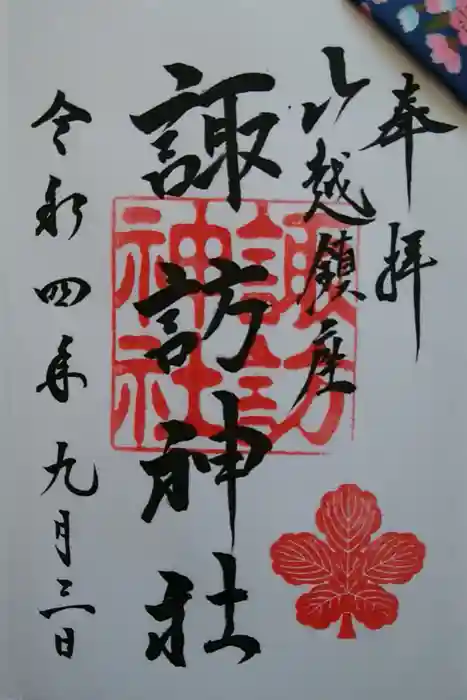 奉拝
山越鎮座
諏訪神社
諏訪
神社
令和四年九月三日